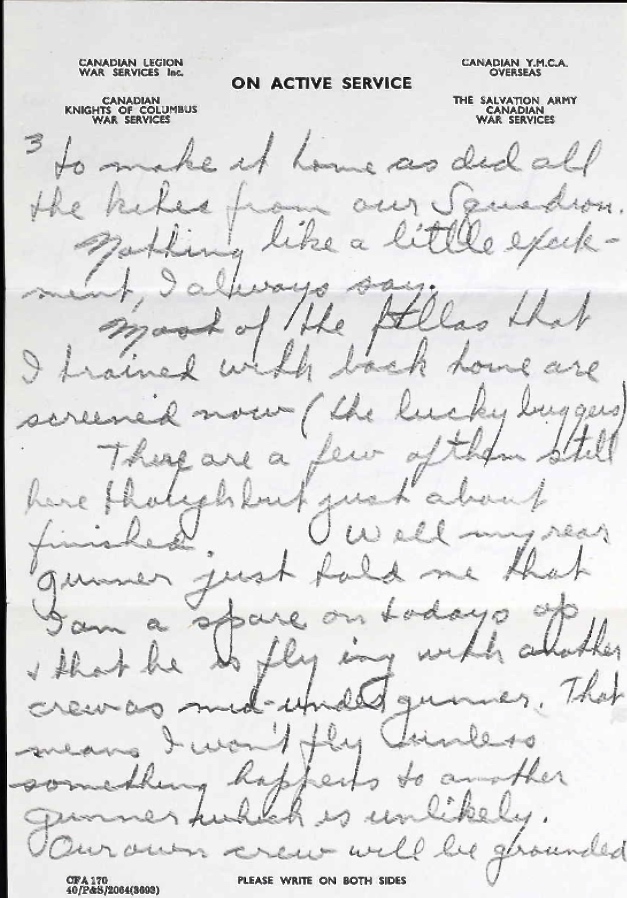 CANADIAN LEGION
WAR SERVICES Inc.
CANADIAN
KNIGHTS OF COLUMBUS
WAR SERVICES
ON ACTIVE SERVICE
CANADIAN Y.M.C.A.
OVERSEAS
THE SALVATION ARMY
CANADIAN
WAR SERVICES
3 to make it home as did all
the kites from our Squadron.
Nothing like a little excite-
ment, I always say.
Most of the fellas that
I trained with back home are
screened now (the lucky buggers)
There are a few of them still
here though but just about
finished Well my rear
gunner just told me that
I am a spare on todays op
& that he is flying with another
crew as mid-under gunner. That
means I won't fly unless
something happens to another
gunner which is unlikely.
Our own crew will be grounded
CFA 170
40/P&S/2064(3603)
PLEASE WRITE ON BOTH SIDES